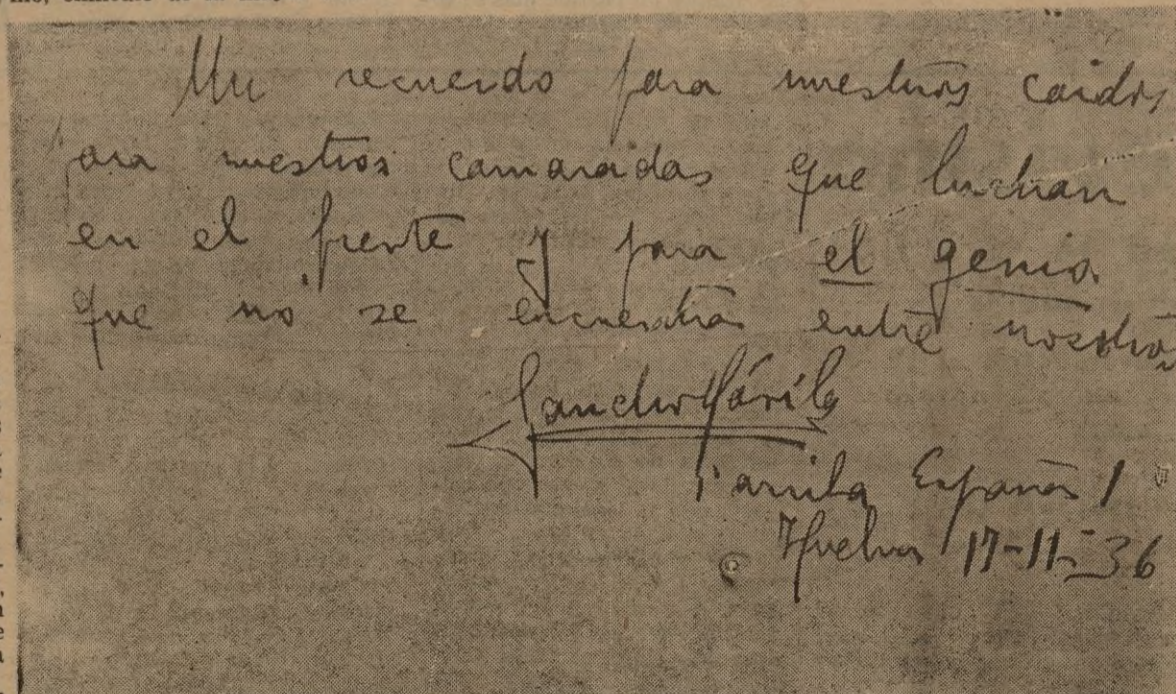 Un recuerdo para nuestros caidos
ara nuestros camaradas que luchan
en el frente y para el genio
que no se encuentra entre nosotros
Sancho Dávila
¡arriba España!
Huelva 17-11-36